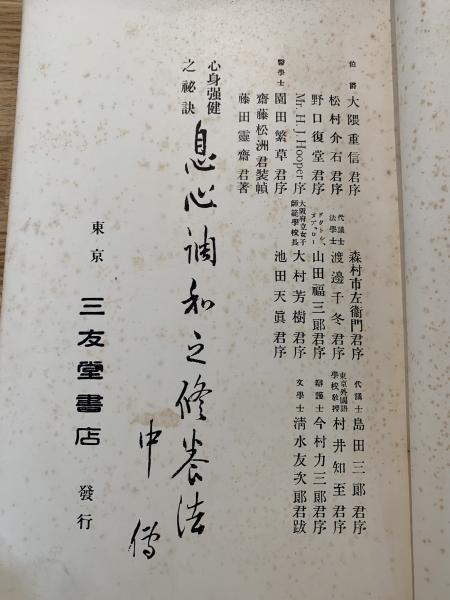 伯爵 大隈重信君序 森村市左衞門君序 代議士 島田三郞君序
松村介石君序 代議士法學士 渡邊千冬君序 東京外國語學校敎授 村井知至君序
野口復堂君序 山田福三郞君序 辯護士 今村力三郞君序
Mr. H. J. Hooper序 大阪府立女子師範學校長 大村芳樹君序 文學士 清水友次郞君跋
醫學士 園田繁草君序 池田天眞君序
齋藤松洲君裝幀
藤田靈齋君著
心身强健
之祕訣
息心調和之修養法
中傳
東京 三友堂書店 發行